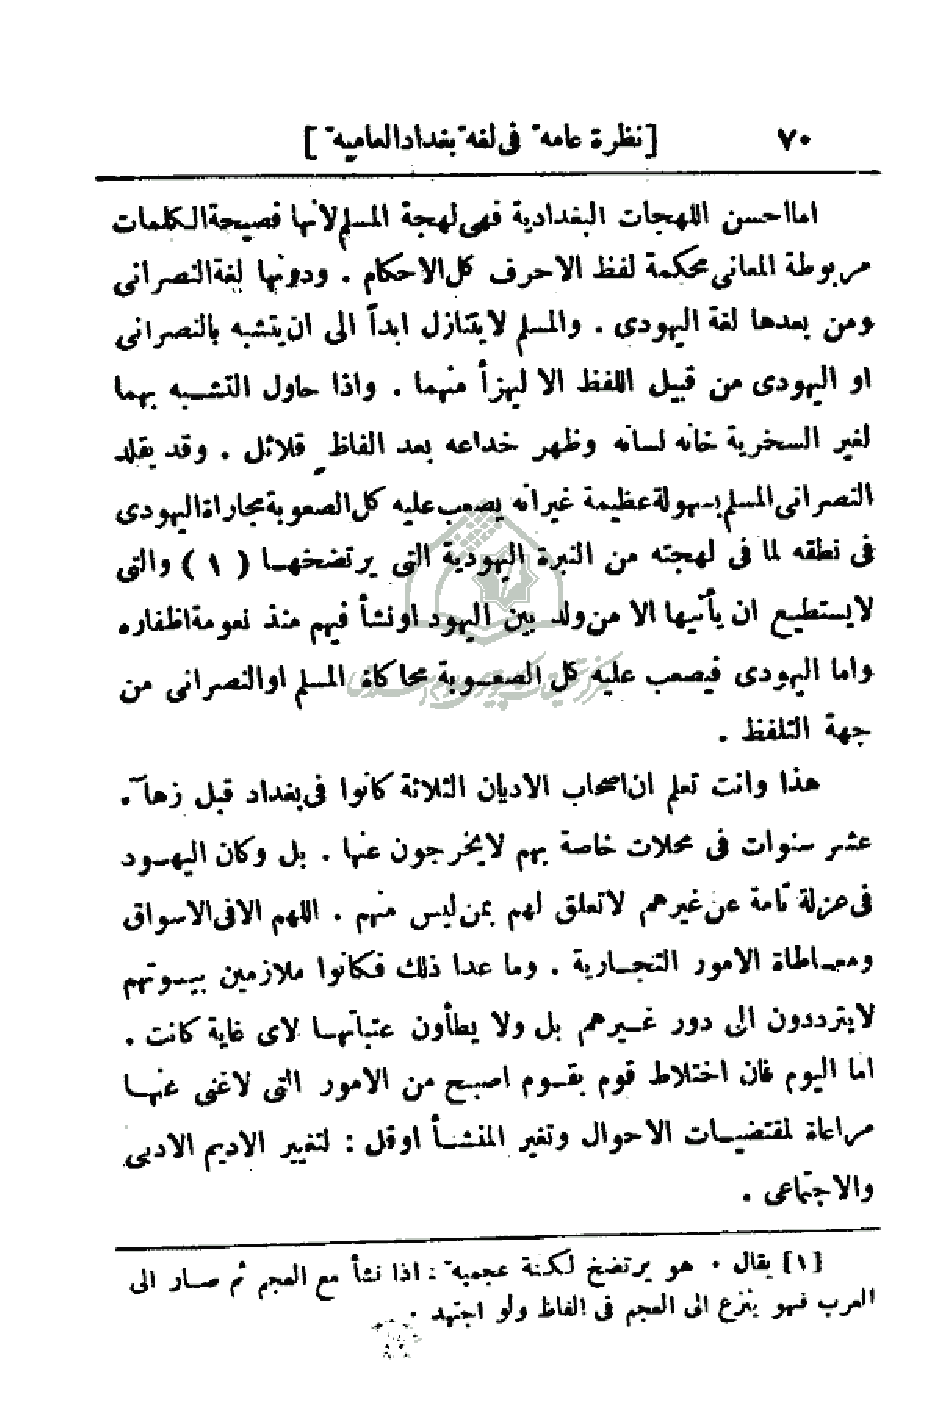 ٧٠ [نظرة عامة فى لغة بغداد العامية]
اما احسن اللهجات البغدادية فهى لهجة المسلم لانها فصيحة الكلمات
مربوطة المعانى محكمة لفظ الاحرف كل الاحكام . ودونها لغة النصرانى
ومن بعدها لغة اليهودى . والمسلم لا يتنازل ابداً الى ان يتشبه بالنصرانى
او اليهودى من قبيل اللفظ الا ليهزأ منهما . واذا حاول التشبه بهما
لغير السخرية خانه لسانه وظهر خداعه بعد الفاظ قلائل . وقد يقلد
النصرانى المسلم بسهولة عظيمة غير انه يصعب عليه كل الصعوبة مجاراة اليهودى
فى نطقه لما فى لهجته من النبرة اليهودية التى يرتضخها ( ١ ) والتى
لا يستطيع ان يأتيها الا من ولد بين اليهود او نشأ فيهم منذ نعومة اظفاره
واما اليهودى فيصعب عليه كل الصعوبة محاكاة المسلم او النصرانى من
جهة التلفظ .
هذا وانت تعلم ان اصحاب الاديان الثلاثة كانوا فى بغداد قبل زهآء
عشر سنوات فى محلات خاصة بهم لا يخرجون عنها . بل وكان اليهود
فى عزلة تامة عن غيرهم لا تعلق لهم بمن ليس منهم . اللهم الا فى الاسواق
ومعاطاة الامور التجارية . وما عدا ذلك فكانوا ملازمين بيوتهم
لا يترددون الى دور غيرهم بل ولا يطأون عتباتها لاى غاية كانت .
اما اليوم فان اختلاط قوم بقوم اصبح من الامور التى لا غنى عنها
مراعاة لمقتضيات الاحوال وتغير المنشأ او قل : لتغيير الاديم الادبى
والاجتماعى .
[١] يقال . هو يرتضخ لكنة عجمية : اذا نشأ مع العجم ثم صار الى
العرب فهو ينزع الى العجم فى الفاظ ولو اجتهد .